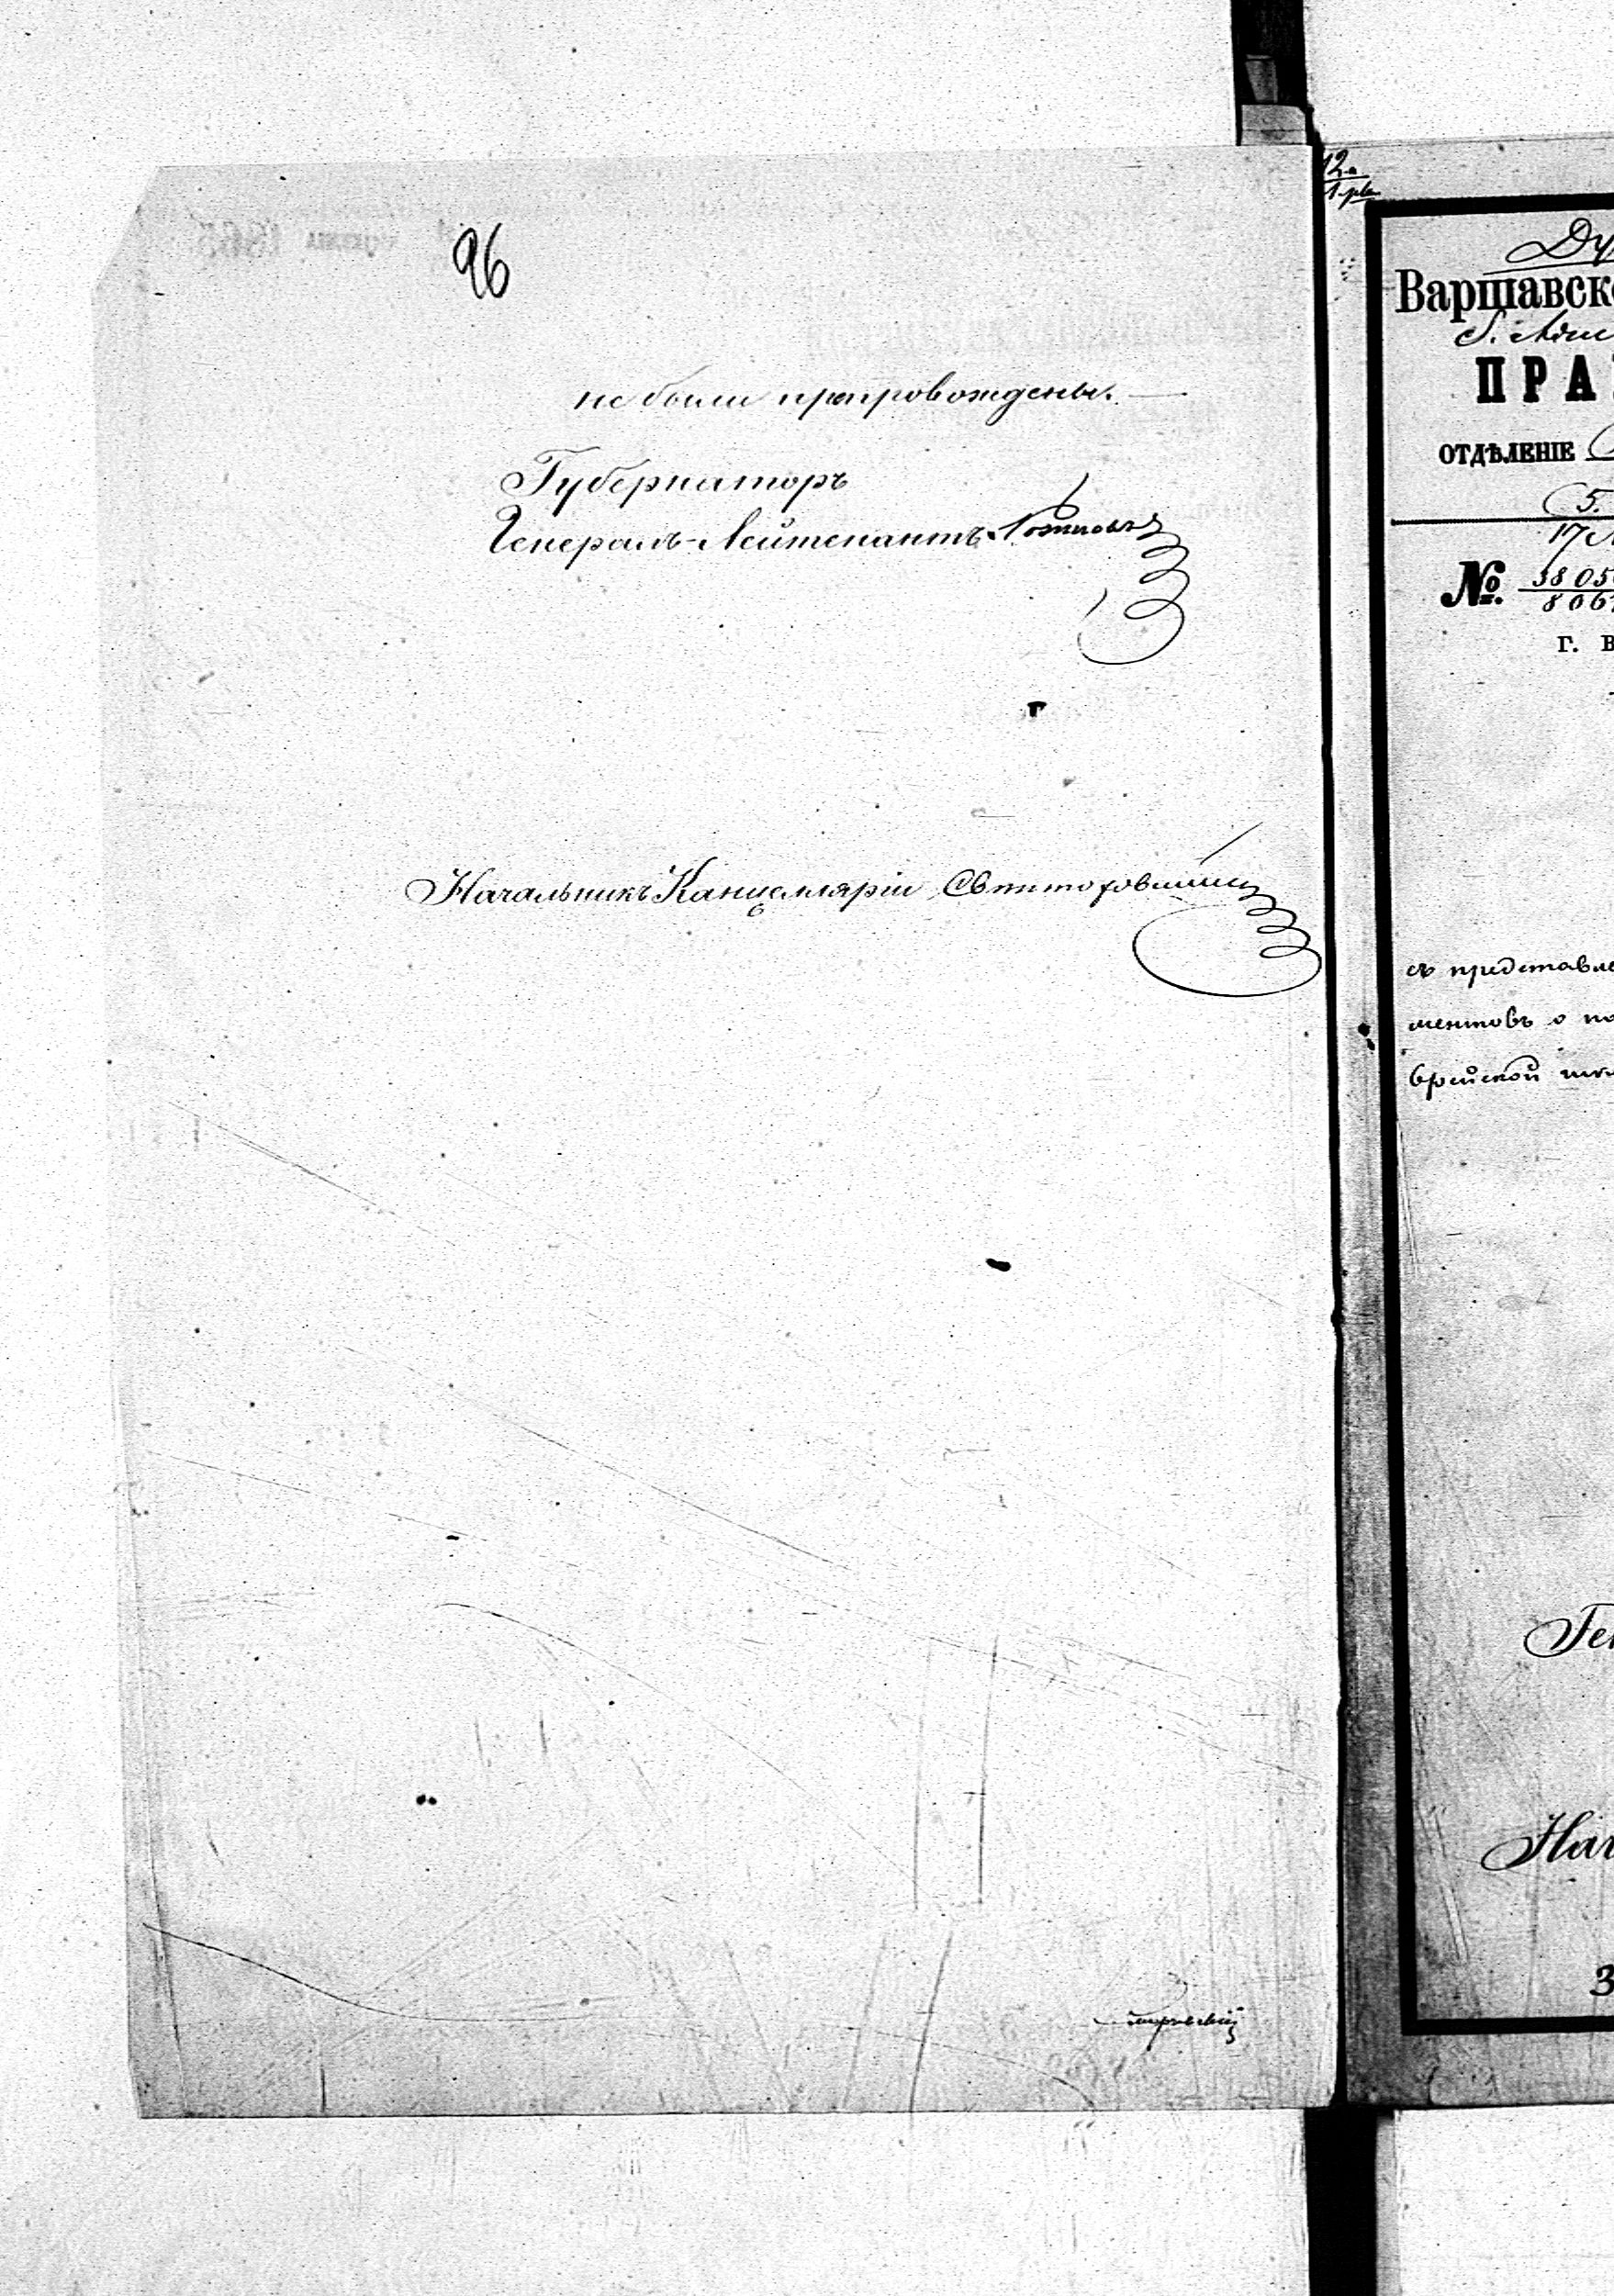 96
не были препровождены.
Губернаторъ
Генералъ-Лейтенантъ Рожновъ
Начальникъ Канцеляріи
12.
Варшавско
ПРА
ОТДѢЛЕНІЕ
5.
17
№ 3805
806
г. В
съ представле
ментовъ о по
врейской шк
Ген
Нач
З